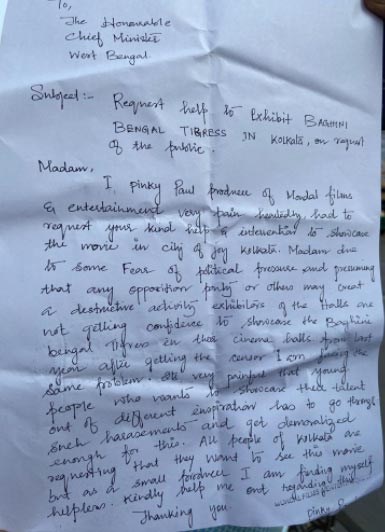 To,
The Honourable
Chief Minister
West Bengal
Subject:- Request help to Exhibit BAGHINI
BENGAL TIGRESS IN Kolkata, on request
of the public.
Madam,
I, Pinky Paul producer of Mondal films
& entertainment very pain heartedly had to
request your kind help & intervention to showcase
the movie in city of joy Kolkata. Madam due
to some Fear of political pressure and presuming
that any opposition party or others may creat
a destructive activity exhibitors of the Halls are
not getting confidence to showcase the Baghini
bengal Tigress in their cinema halls from last
year after getting the censor I am facing the
same problem. Its very painful that young
people who wants to showcase their talent
out of different inspiration has to go through
such harassments and get demoralized
enough for this. All people of Kolkata are
requesting that they want to see this movie
but as a small producer I am finding myself
helpless. Kindly help me out regarding this.
Thanking you.
Pinky